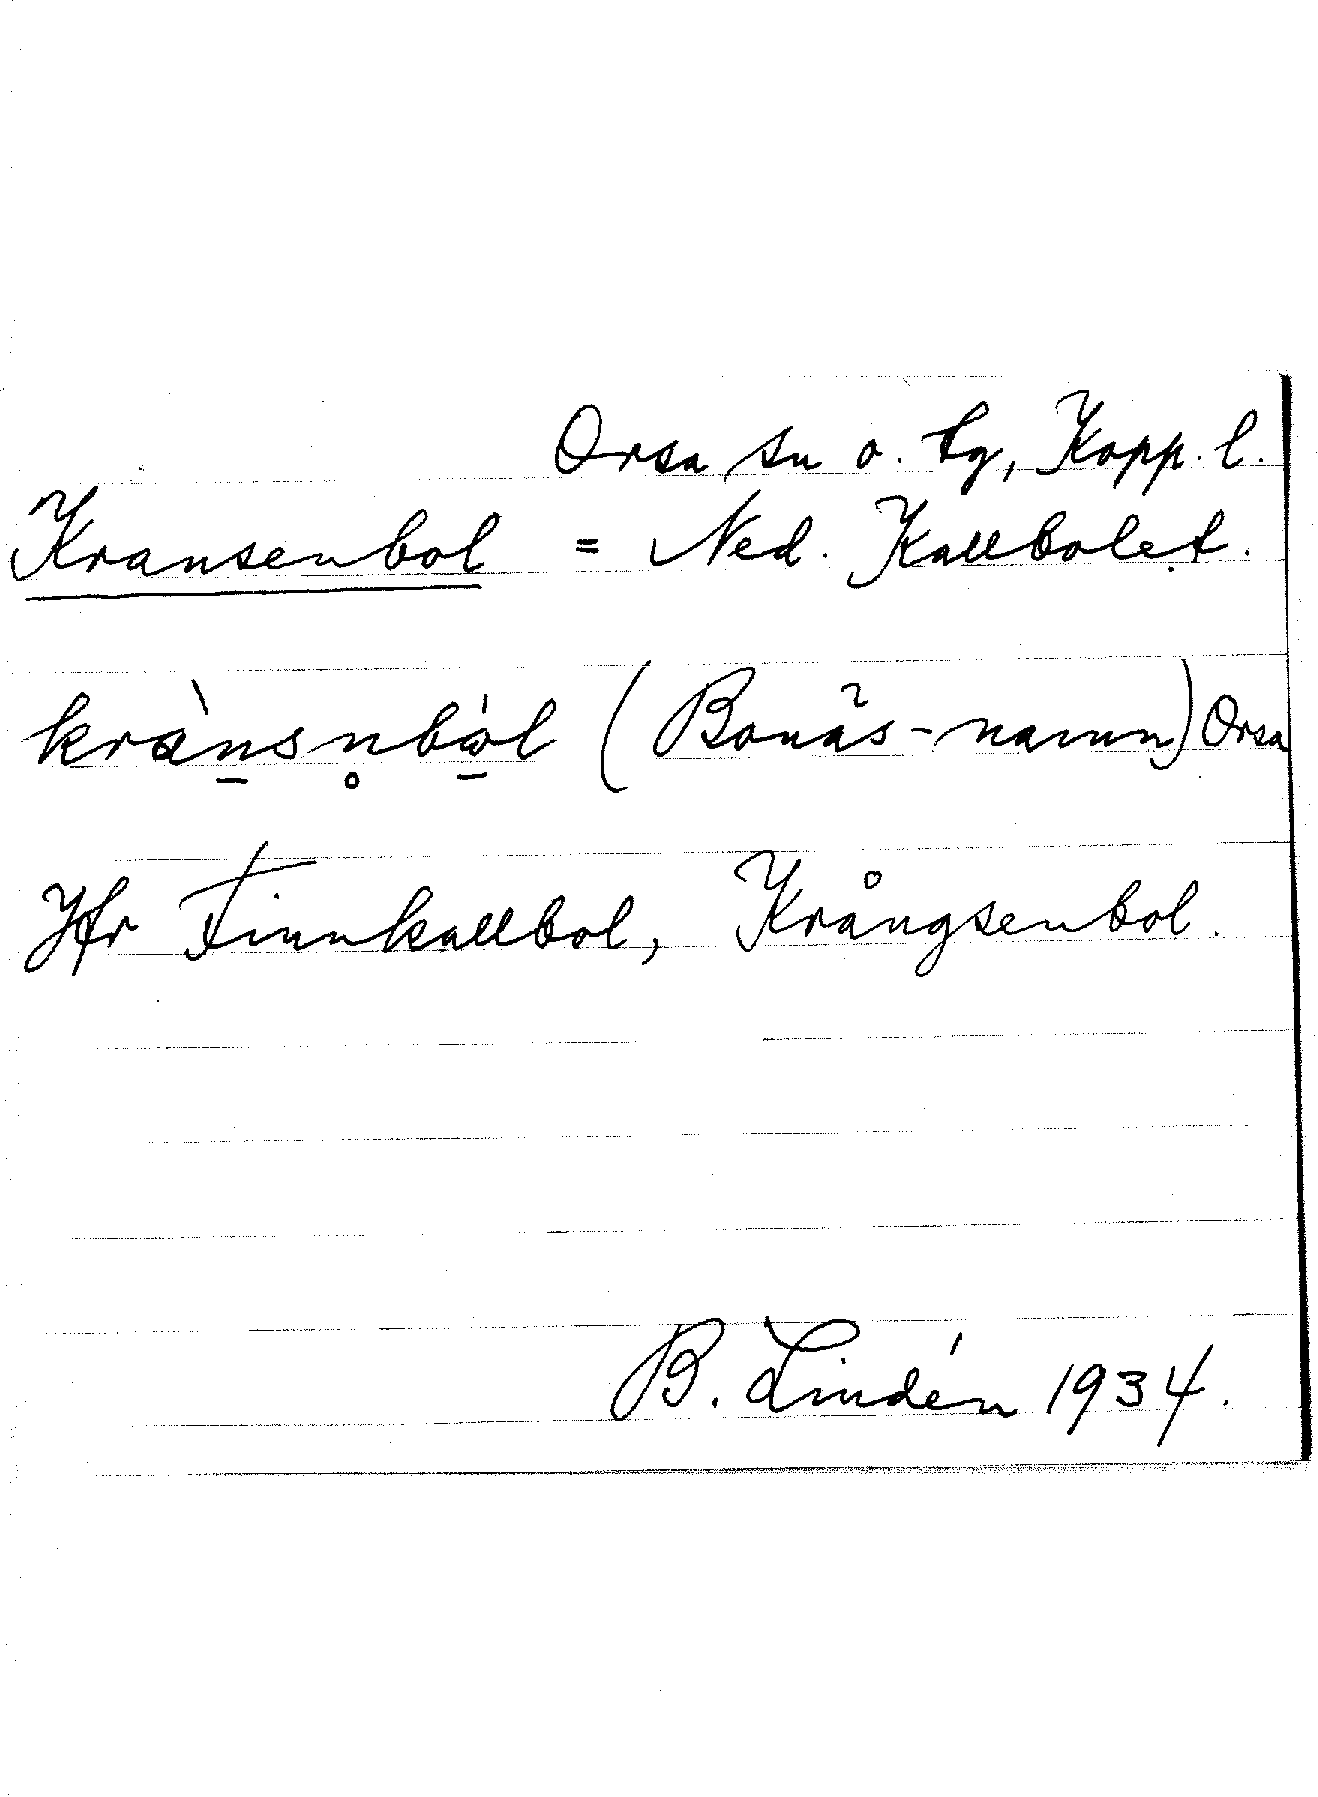 Orsa sn o. tg, Kopp. l.
Kransenbol = Ned. Kallbolet.
kràn̠sn̥bò̠l (Bonäs-namn) Orsa
Jfr Finnkallbol, Krångsenbol.
B. Lindén 1934.